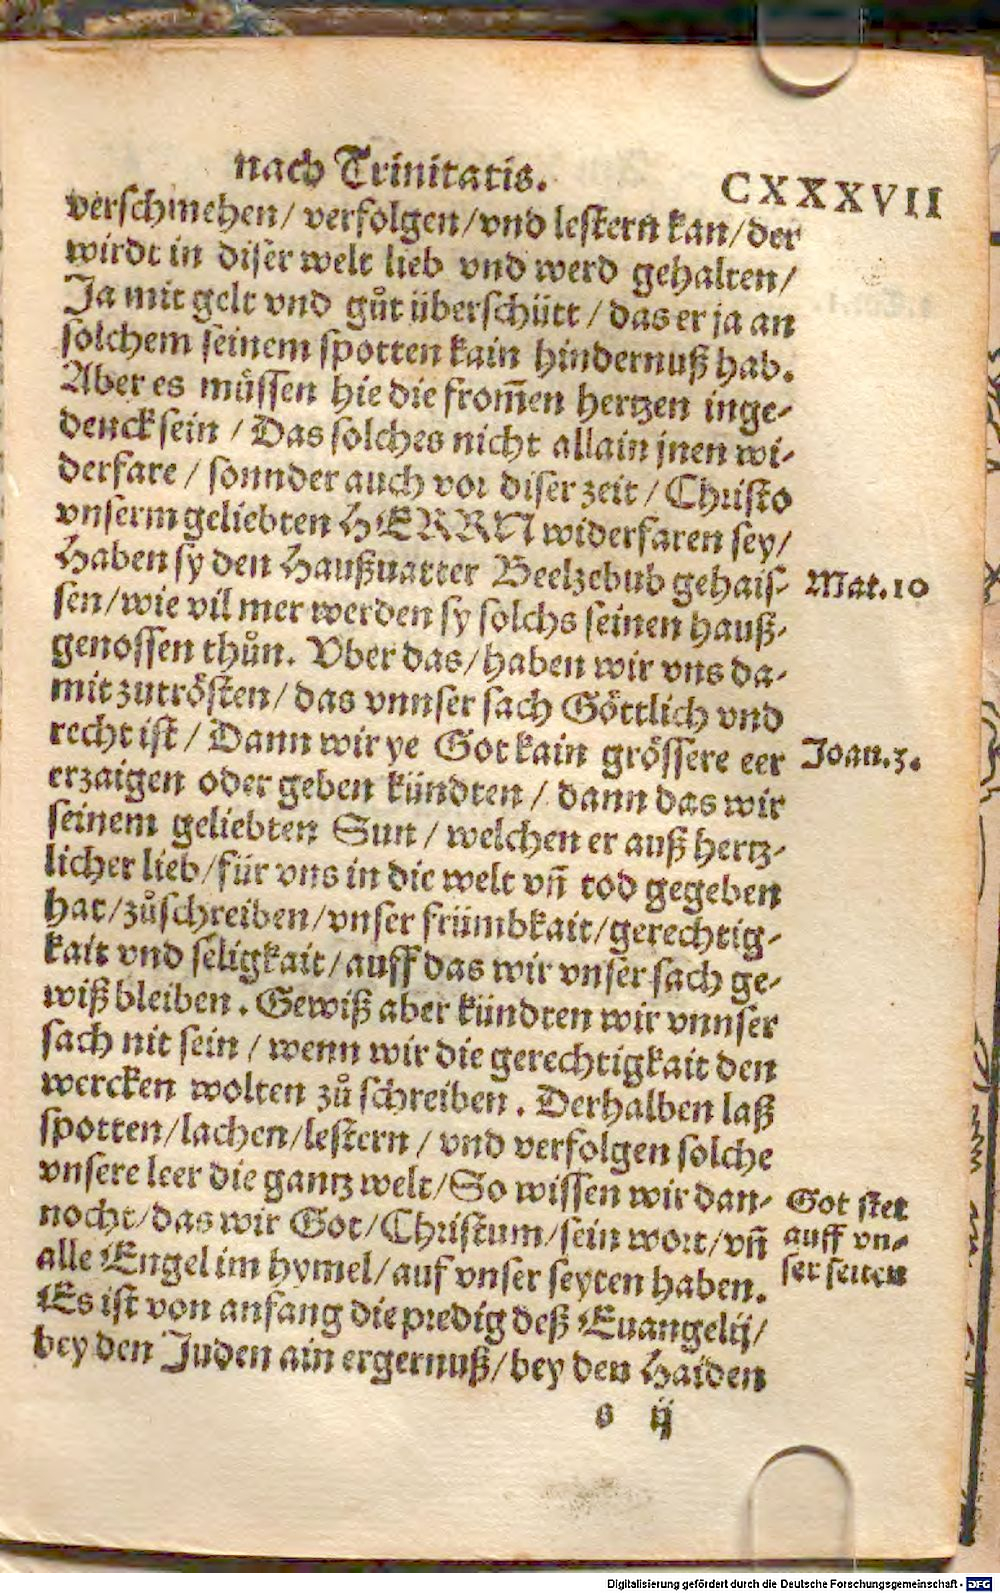 nach Trinitatis. CXXXVII
verschmehen/ verfolgen/vnd lestern kan/der
wirdt in diser welt lieb vnd werd gehalten/
Ja mit gelt vnd gůt überschütt / das er ja an
solchem seinem spotten kain hindernuß hab.
Aber es müssen hie die from̃en hertzen inge-
denck sein / Das solches nicht allain jnen wi-
derfare / sonnder auch vor diser zeit / Christo
vnserm geliebten HERRN widerfaren sey/
Haben sy den Haußuatter Beelzebub gehais- Mat. 10
sen/wie vil mer werden sy solchs seinen hauß-
genossen thůn. Vber das/haben wir vns da-
mit zutrösten/ das vnnser sach Göttlich vnd
recht ist / Dann wir ye Got kain grössere eer Joan. 3.
erzaigen oder geben kündten / dann das wir
seinem geliebten Sun / welchen er auß hertz-
licher lieb/für vns in die welt vñ tod gegeben
hat/zůschreiben/vnser frümbkait/gerechtig-
kait vnd seligkait/auff das wir vnser sach ge-
wiß bleiben. Gewiß aber kündten wir vnnser
sach nit sein / wenn wir die gerechtigkait den
wercken wolten zů schreiben. Derhalben laß
spotten/lachen/lestern / vnd verfolgen solche
vnsere leer die gantz welt/So wissen wir dan-
nocht/das wir Got/Christum/sein wort/vñ
alle Engel im hymel/auf vnser seyten haben.
Es ist von anfang die predig deß Euangelij/
bey den Juden ain ergernuß/bey den Haiden
Got stet
auff vn-
ser seiten
s ij
Digitalisierung gefördert durch die Deutsche Forschungsgemeinschaft - DFG